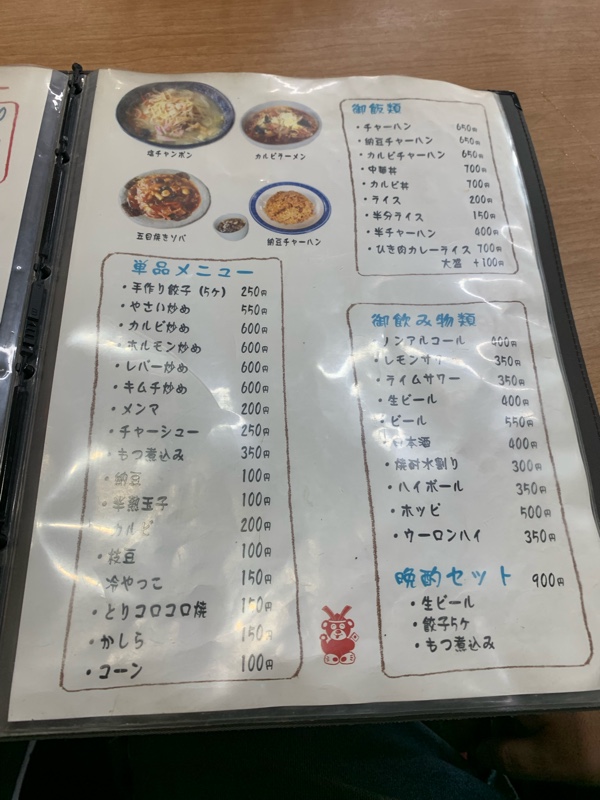 塩チャンポン
カルビラーメン
五目焼きソバ
納豆チャーハン
単品メニュー
・手作り餃子(5ケ) 250円
・やさい炒め 550円
・カルビ炒め 600円
・ホルモン炒め 600円
・レバー炒め 600円
・キムチ炒め 600円
・メンマ 200円
・チャーシュー 250円
・もつ煮込み 350円
・納豆 100円
・半熟玉子 100円
カルビ 200円
・枝豆 100円
冷やっこ 150円
・とりコロコロ焼 150円
・かしら 150円
・コーン 100円
御飯類
・チャーハン 650円
・納豆チャーハン 650円
・カルビチャーハン 650円
・中華丼 700円
・カルビ丼 700円
・ライス 200円
・半分ライス 150円
・半チャーハン 400円
・ひき肉カレーライス 700円
大盛 +100円
御飲み物類
ノンアルコール 400円
・レモンサワー 350円
・ライムサワー 350円
・生ビール 400円
・ビール 550円
・日本酒 400円
・焼酎水割り 300円
・ハイボール 350円
・ホッピ 500円
・ウーロンハイ 350円
晩酌セット 900円
・生ビール
・餃子5ケ
・もつ煮込み